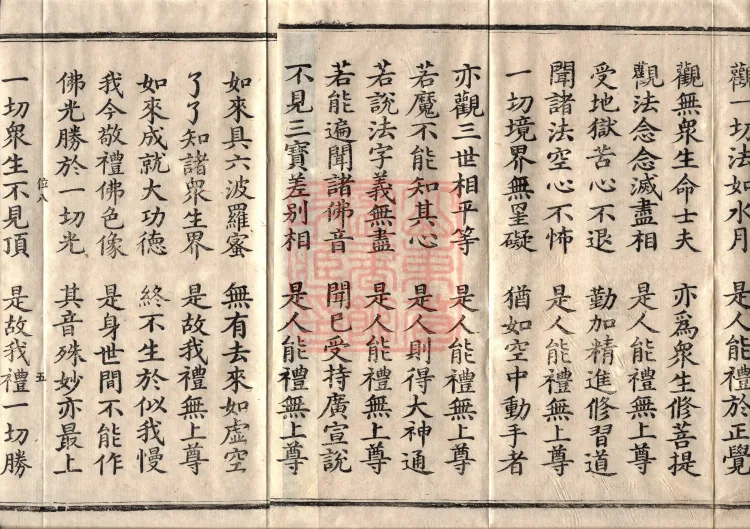 觀一切法如水月　是人能禮於正覺
觀無衆生命士夫　亦爲衆生修菩提
觀法念念滅盡相　是人能禮無上尊
受地獄苦心不退　勤加精進修習道
聞諸法空心不怖　是人能禮無上尊
一切境界無罣礙　猶如空中動手者
亦觀三世相平等　是人能禮無上尊
若魔不能知其心　是人則得大神通
若說法字義無盡　是人能禮無上尊
若能遍聞諸佛音　聞已受持廣宣說
不見三寶差別相　是人能禮無上尊
如來具六波羅蜜　無有去來如虛空
了了知諸衆生界　是故我禮無上尊
如來成就大功德　終不生於似我慢
我今敬禮佛色像　是身世間不能作
佛光勝於一切光　其音殊妙亦最上
位八　五
一切衆生不見頂　是故我禮一切勝